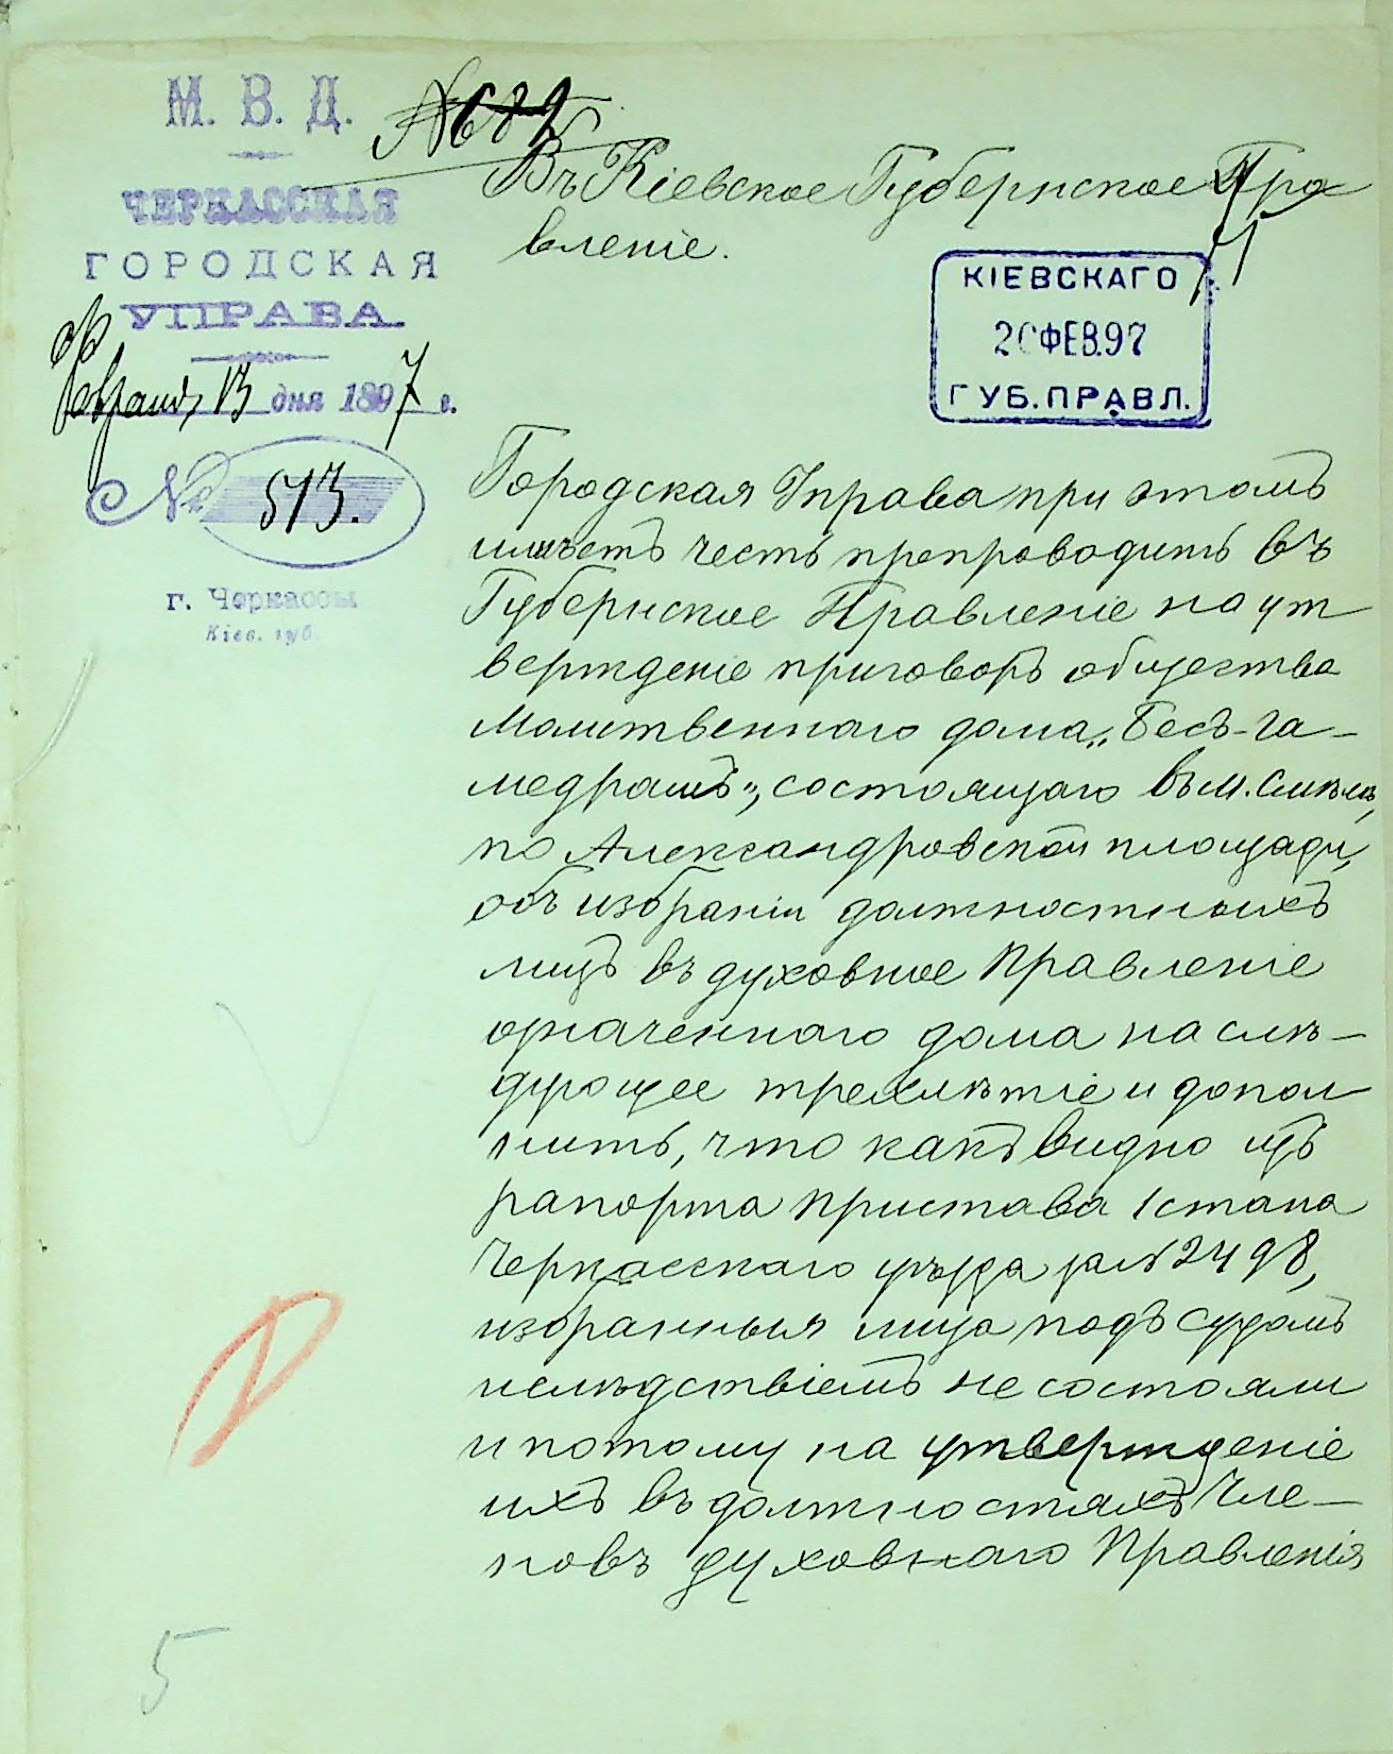 М. В. Д.
ЧЕРКАССКАЯ
ГОРОДСКАЯ
УПРАВА
Февраля 13 дня 1897 г.
№ 513.
г. Черкассы
Кіев. губ.
Въ Кіевское Губернское Пра
вленіе.
КІЕВСКАГО
20 ФЕВ.97
ГУБ. ПРАВЛ.
Городская Управа при этомъ
имѣетъ честь препроводить въ
Губернское Правленіе на ут
вержденіе приговоръ общества
молитвеннаго дома „Бесъ-га-
медрашъ“, состоящаго въ м. Смѣлѣ,
по Александровской площади,
объ избраніи должностныхъ
лицъ въ духовное Правленіе
означеннаго дома на слѣ-
дующее трехлѣтіе и допол
нить, что какъ видно изъ
рапорта Пристава 1 стана
Черкасскаго уѣзда за № 2498,
избранныя лица подъ судомъ
и слѣдствіемъ не состояли
и потому на утвержденіе
ихъ въ должностяхъ Чле-
новъ духовнаго Правленія
5